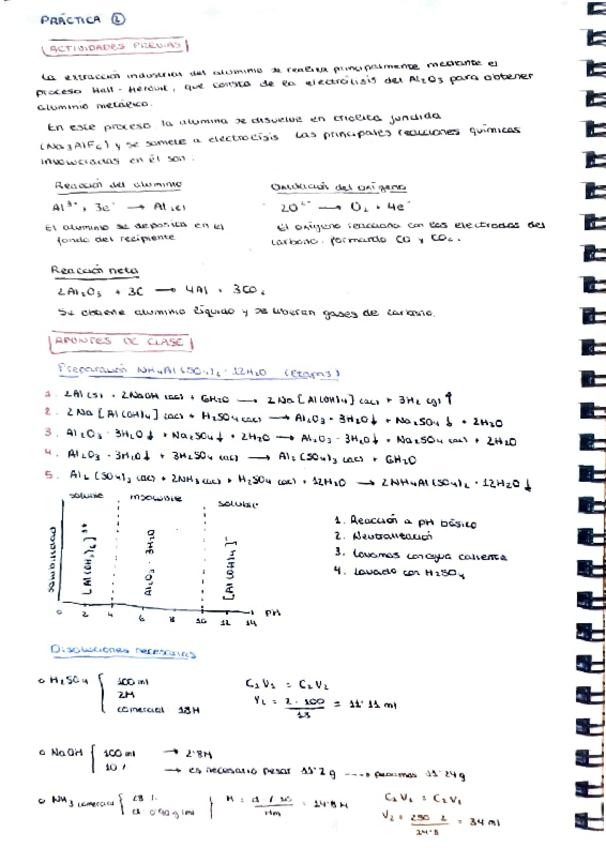 PRÁCTICA 2
ACTIVIDADES PREVIAS
La extracción industrial del aluminio se realiza principalmente mediante el
proceso Hall-Heroult, que consta de la electrólisis del Al2O3 para obtener
aluminio metálico.
En este proceso la alumina se disuelve en criolita fundida
(Na3AlF6) y se somete a electrolisis. Las principales reacciones químicas
involucradas en él son:
Reacción del aluminio
Al3+ + 3e- → Al(l)
El aluminio se deposita en el
fondo del recipiente
Oxidación del oxígeno
2O2- → O2 + 4e-
El oxígeno reacciona con los electrodos del
carbono, formando CO y CO2.
Reacción neta
2Al2O3 + 3C → 4Al + 3CO2
Se obtiene aluminio líquido y se liberan gases de carbono.
APUNTES DE CLASE
Preparación NH4Al(SO4)2 · 12H2O (etapas)
1. 2Al(s) + 2NaOH (ac) + 6H2O → 2Na[Al(OH)4] (ac) + 3H2 (g)↑
2. 2Na[Al(OH)4] (ac) + H2SO4 (ac) → Al2O3 · 3H2O↓ + Na2SO4↓ + 2H2O
3. Al2O3 · 3H2O↓ + Na2SO4↓ + 2H2O → Al2O3 · 3H2O↓ + Na2SO4 (ac) + 2H2O
4. Al2O3 · 3H2O↓ + 3H2SO4 (ac) → Al2(SO4)3 (ac) + 6H2O
5. Al2(SO4)3 (ac) + 2NH3 (ac) + H2SO4 (ac) + 12H2O → 2NH4Al(SO4)2 · 12H2O↓
soluble insoluble soluble
solubilidad
Al2O3 · 3H2O
[Al(OH)4]-
0 2 4 6 8 10 12 14 pH
1. Reacción a pH básico
2. Neutralización
3. Lavamos con agua caliente
4. Lavado con H2SO4
Disoluciones necesarias
H2SO4 { 100 ml
2M
comercial 18M
C1V1 = C2V2
V2 = 2 · 100 / 18 = 11'11 ml
NaOH { 100 ml → 2'8M
10% → es necesario pesar 11'2 g ---→ pesamos 11'24g
NH3 comercial { 28 %
d 0'90 g/ml
} M = / Mm = 14'8 M
C1V1 = C2V2
V2 = 250 · 2 / 14'8 = 34 ml